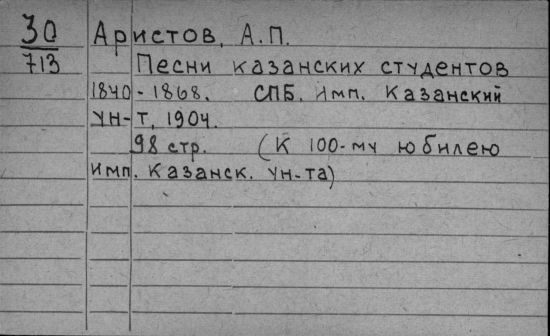 30 Аристов, А.П.
713 Песни казанских студентов
1840-1868. СПБ. Имп. Казанский
ун-т, 1904.
98 стр. (К 100-му юбилею
Имп. Казанск. ун-та)